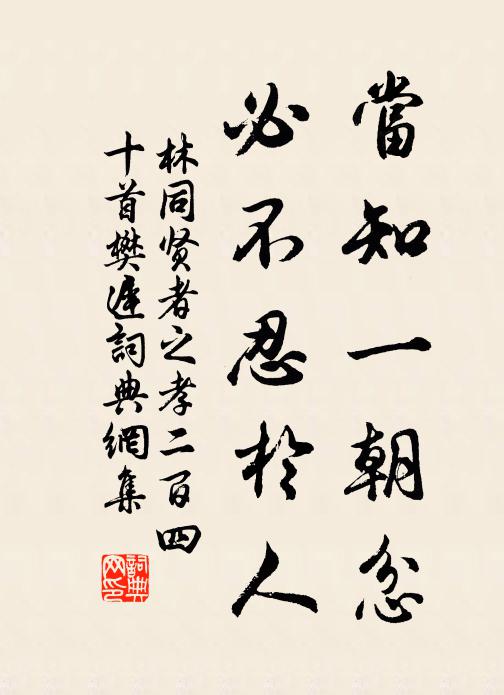 當知一朝忿
必不忍於人
林同贤者之孝二百四
十首樊遲詞典網集
詞典
网印